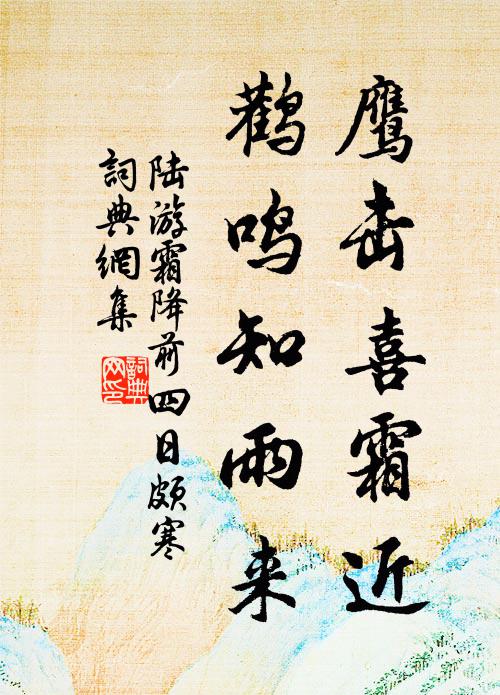 鹰击喜霜近
鹳鸣知雨来
陆游霜降前四日颇寒
詞典網集
詞典网印